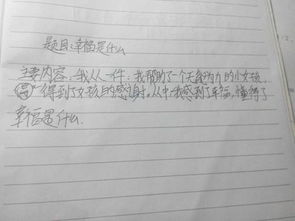 题目:幸福是什么
主要内容,我从一件:我帮助了一个无能为力的小女孩,
得到了女孩的感谢。从中我感到了幸福,懂得了
幸福是什么.